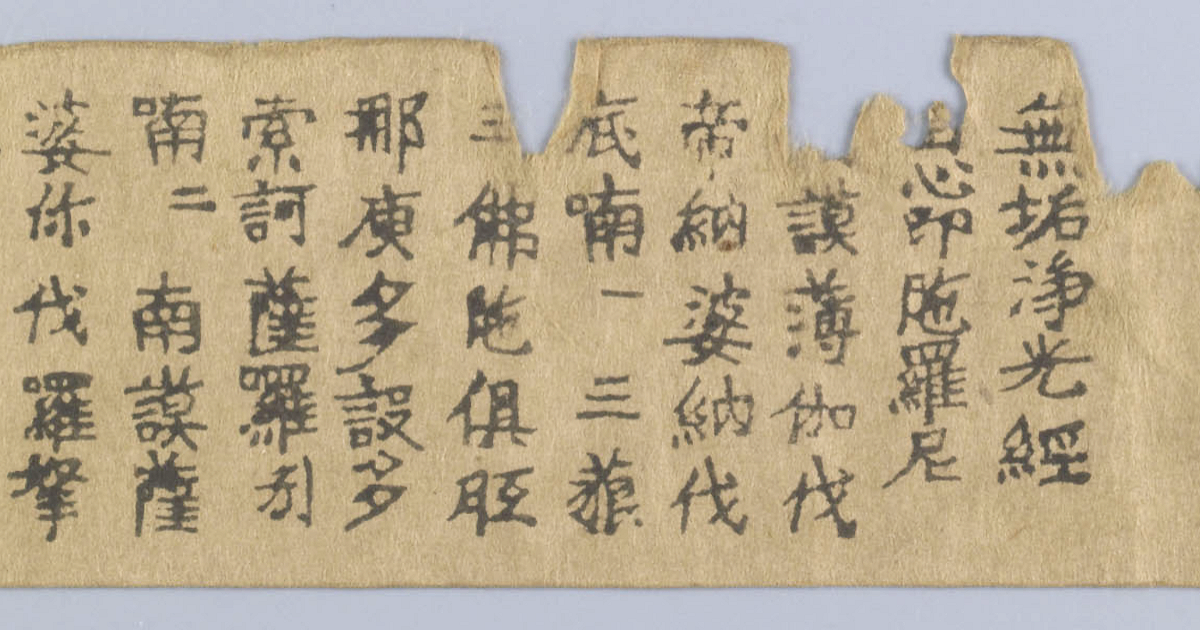 無垢浄光經
自心印陁羅尼
謨薄伽伐
帝納婆納伐
底喃一 三藐
三佛陁俱胝
那庾多設多
索訶薩囉
喃二 南謨薩
婆你伐羅拏